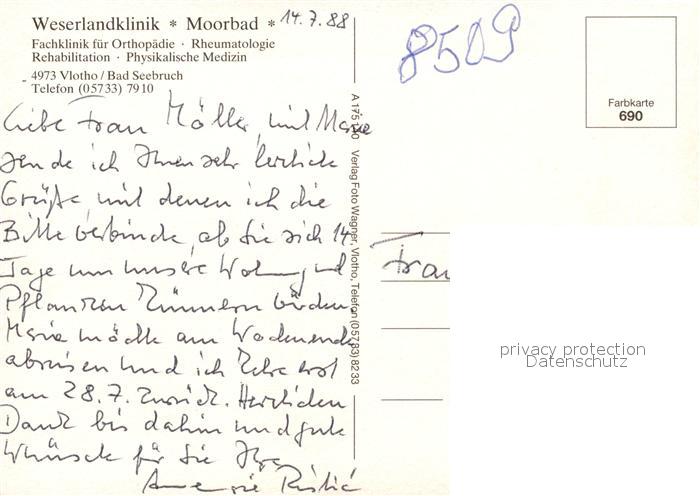 Weserlandklinik * Moorbad *
14.7.88
Fachklinik für Orthopädie · Rheumatologie
Rehabilitation · Physikalische Medizin
4973 Vlotho / Bad Seebruch
Telefon (05733) 7910
Liebe Frau Möller, und Marie
sende ich Ihnen sehr herzliche
Grüße, mit denen ich die
Bitte verbinde, ob Sie sich 14
Tage um unsere Wohnung und
Pflanzen kümmern würden.
Marie möchte am Wochenende
abreisen und ich kehre erst
am 28.7. zurück. Herzlichen
Dank bis dahin und gute
Wünsche für Sie Ihre
Ristić
Verlag Foto Wagner, Vlotho, Telefon (05733) 8233
8509
Farbkarte
690
Frau
privacy protection
Datenschutz